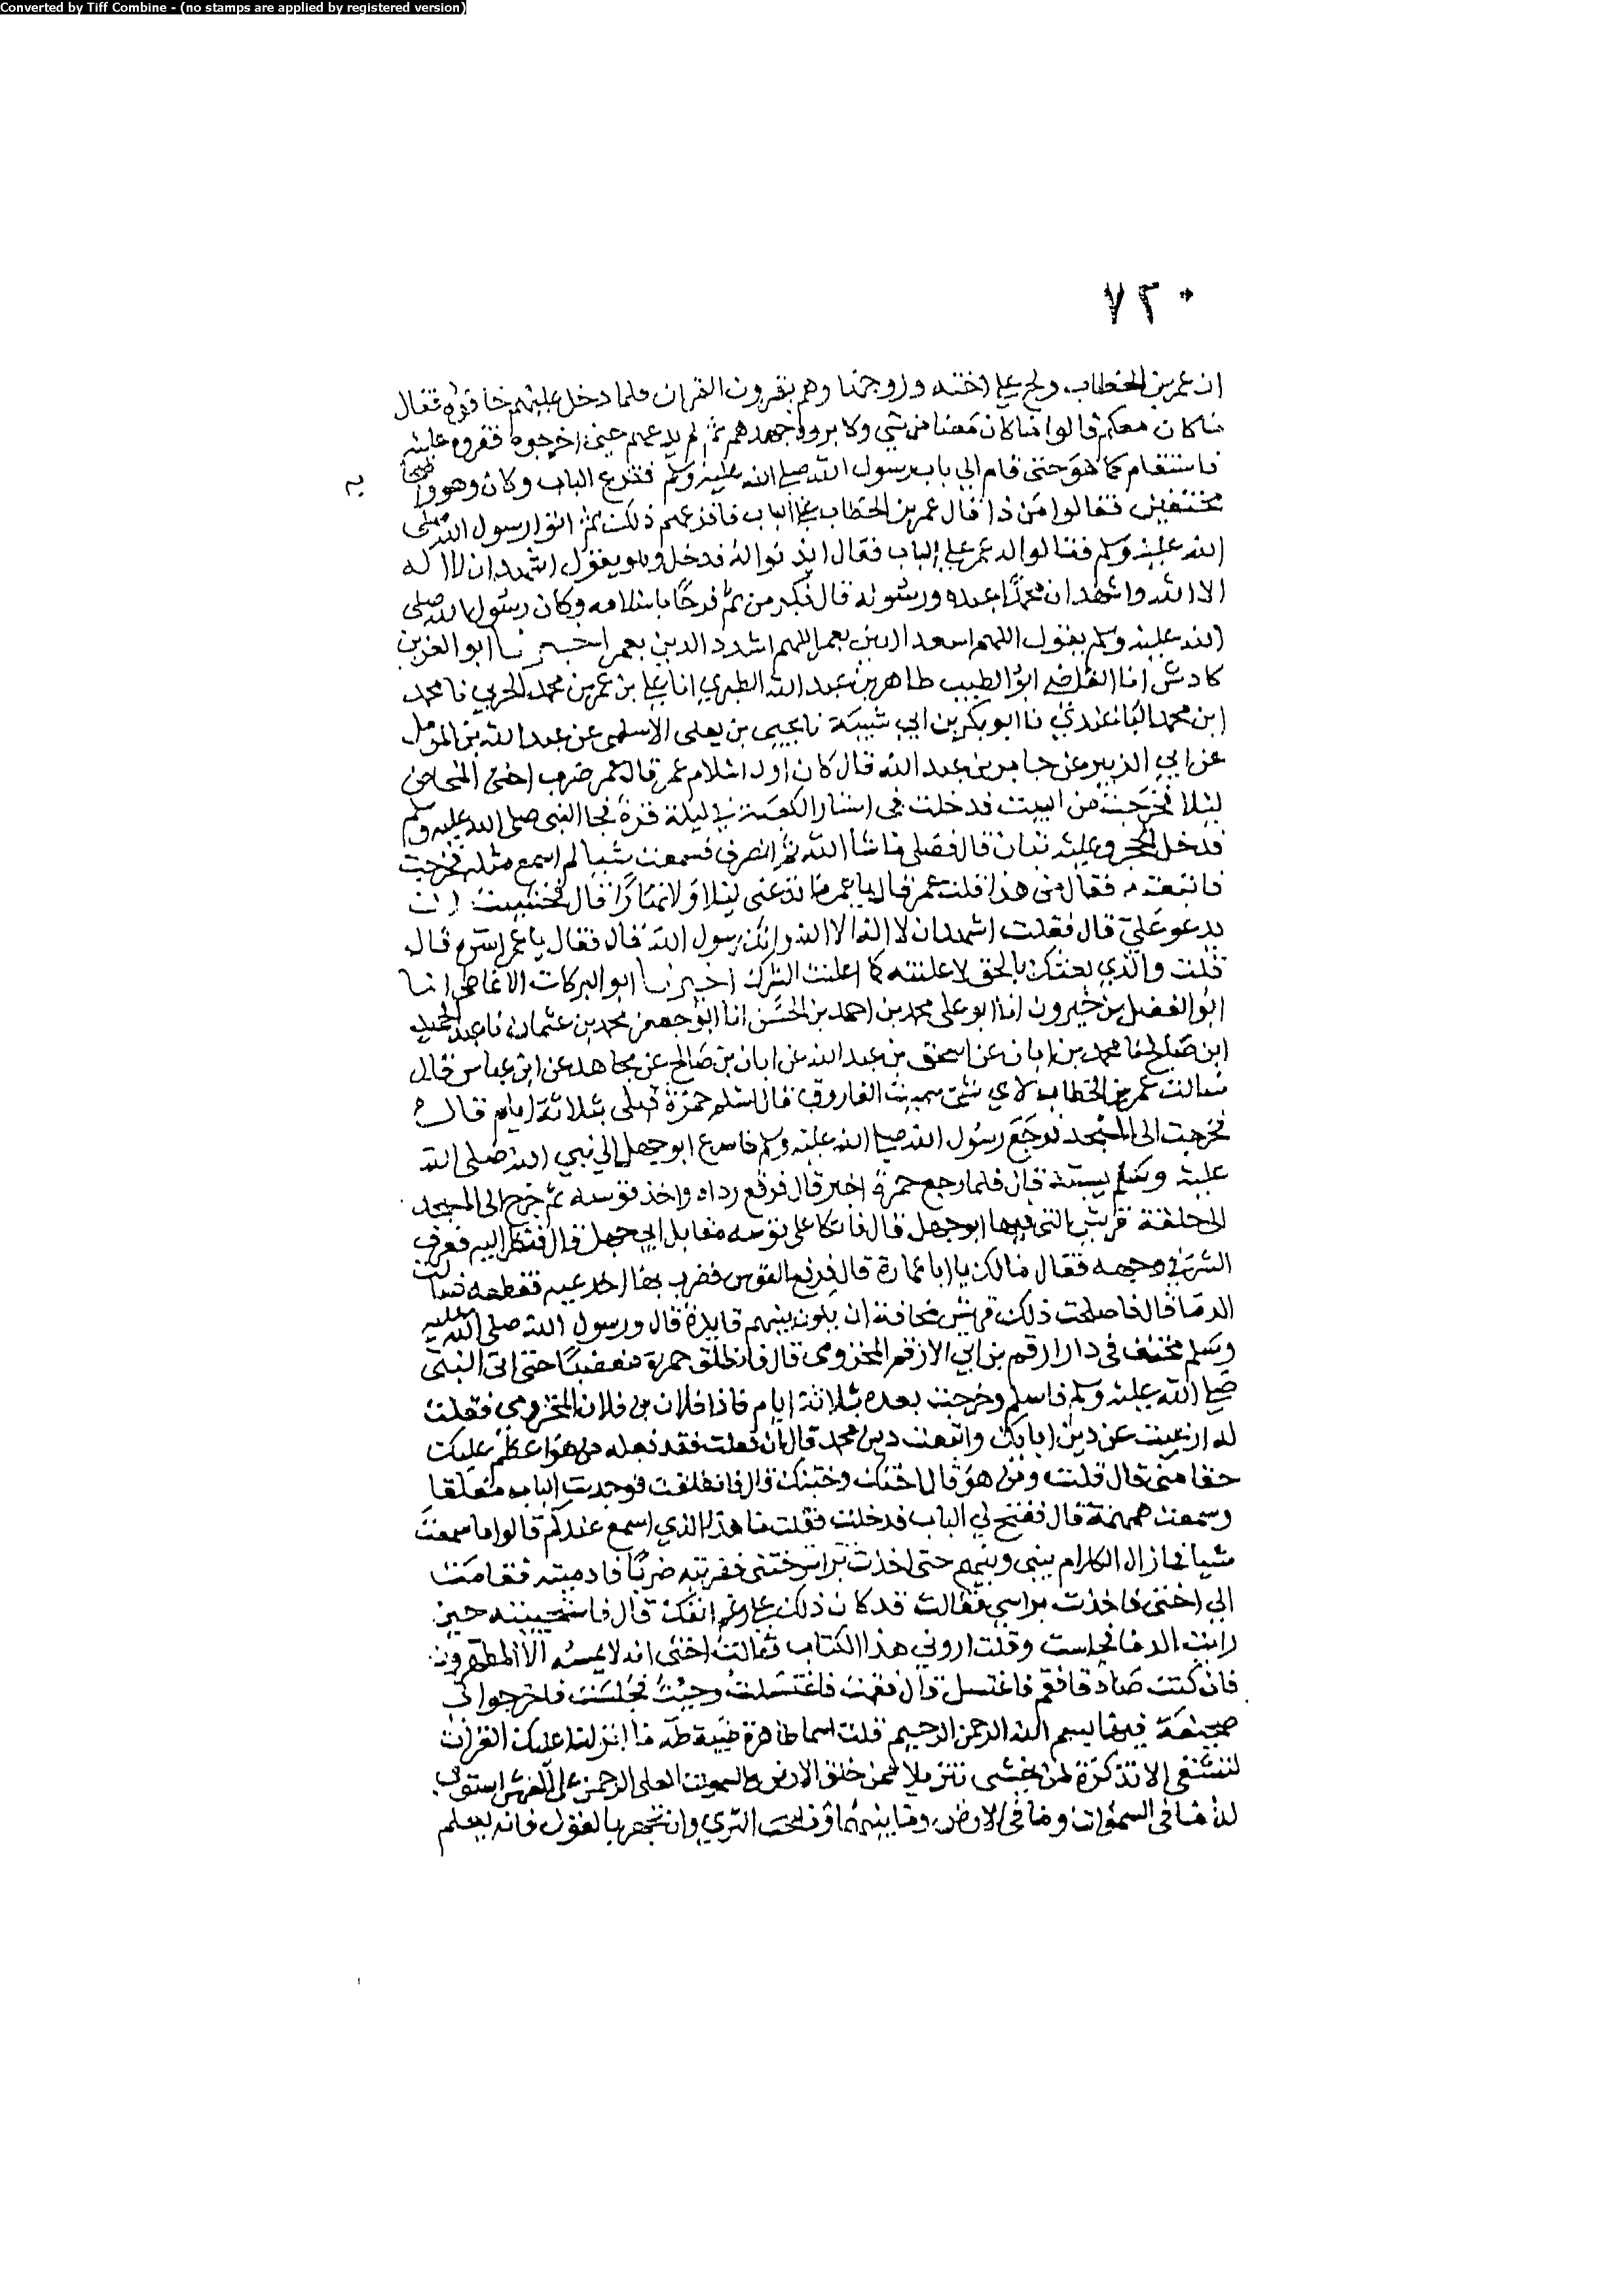 Converted by Tiff Combine - (no stamps are applied by registered version)
٧٢٠
ان عمر بن الخطاب ولج على اخته وزوجها وهم يقرون القران فلما دخل عليهم خافوه فقال
ما كان معكم قالوا ما كان معنا من شي ولا بروو جهدهم ثم لم يدعهم حتى اخرجوه فقروه عليه
فاستقام كما هو حتى قام الى باب رسول الله صلى الله عليه وسلم فقرع الباب وكان وهو
مختفين فقالوا من ذا قال عمر بن الخطاب على الباب فافزعهم ذلك ثم اتوا رسول الله صلى
الله عليه وسلم فقالوا له عمر على الباب فقال ايذنوا له فدخل وهو يقول اشهد ان لا اله
الا الله واشهد ان محمدا عبده ورسوله قال فكبر من ثم فرحا باسلامه وكان رسول الله صلى
الله عليه وسلم يقول اللهم اسعد الدين بعمر اللهم اشدد الدين بعمر اخبرنا ابو العز بن
كادش انا القاضي ابو الطيب طاهر بن عبد الله الطبري انا علي بن عمر بن محمد الحربي نا محمد
ابن محمد الباغندي نا ابو بكر بن ابي شيبة نا يحيى بن يعلى الاسلمى عن عبد الله بن المومل
عن ابي الزبير عن جابر بن عبد الله قال كان اول اسلام عمر قال عمر ضرب اختى المخاض
ليلا فخرجت من البيت فدخلت في استار الكعبة في ليلة قرة فجا النبى صلى الله عليه وسلم
فدخل الحجر وعليه تبان قال فصلى ما شا الله ثم انصرف فسمعت شيا لم اسمع مثله فخرجت
فاتبعته فقال من هذا قلت عمر قال يا عمر ما تدعنى ليلا ولا نهارا قال فخشيت ان
يدعو علي قال فقلت اشهد ان لا اله الا الله وانك رسول الله قال فقال يا عمر استره قال
قلت والذي بعثك بالحق لاعلننه كما اعلنت الشرك اخبرنا ابو البركات الانماطى انا
ابو الفضل بن خيرون انا ابو على محمد بن احمد بن الحسن انا ابو جعفر محمد بن عثمان نا عبد الحميد
ابن صالح نا محمد بن ابان عن اسحق بن عبد الله عن ابان بن صالح عن مجاهد عن ابن عباس قال
سالت عمر بن الخطاب لاي شى سميت الفاروق قال اسلم حمزة قبلى بثلاثة ايام قال
فخرجت الى المسجد رسول الله صلى الله عليه وسلم فاسرع ابو جهل الى نبي الله صلى الله
عليه وسلم يسبه قال فلما رجع حمزة اخبر قال فرفع رداه واخذ قوسه ثم خرج الى المسجد
الى حلقة قريش التى فيها ابو جهل قال فاتكا على قوسه مقابل ابي جهل قال فنظر اليه فعرف
الشر في وجهه فقال مالك يا ابا عمارة قال فرفع القوس فضرب بها فقطعه فسالت
الدما قال فاصلحت ذلك قريش مخافة ان يكون بينهم قال ورسول الله صلى الله عليه
وسلم مختف في دار ارقم بن ابي الارقم المخزومى قال فانطلق حمزة مغضبا حتى اتى النبى
صلى الله عليه وسلم فاسلم وخرجت بعده بثلاثة ايام فاذا فلان بن فلان المخزومي فقلت
له ارغبت عن دين ابايك واتبعت دين محمد قال ان فعلت فقد فعله من هو اعظم عليك
حقا منى قال قلت ومن هو قال اختك وختنك قال فانطلقت فوجدت الباب مغلقا
وسمعت همهمة قال ففتح لي الباب فدخلت فقلت ما هذا الذي اسمع عندكم قالوا ما سمعت
شيا فما زال الكلام بينى وبينهم حتى اخذت براس ختنى فضربته ضربا فادميته فقامت
الي اختى فاخذت براسي فقالت قد كان ذلك على رغم انفك قال فاستحييت حين
رايت الدما فجلست وقلت اروني هذا الكتاب فقالت اختى انه لا يمسه الا المطهرون
فان كنت صادقا فقم فاغتسل قال فقمت فاغتسلت وجيت فجلست فاخرجوا لي
صحيفة فيها بسم الله الرحمن الرحيم قلت اسما طاهرة طيبة طه ما انزلنا عليك القران
لتشقى الا تذكرة لمن يخشى تنزيلا ممن خلق الارض والسموت العلى الرحمن على العرش استوى
له ما في السموات وما في الارض وما بينهما وما تحت الثري وان تجهر بالقول فانه يعلم